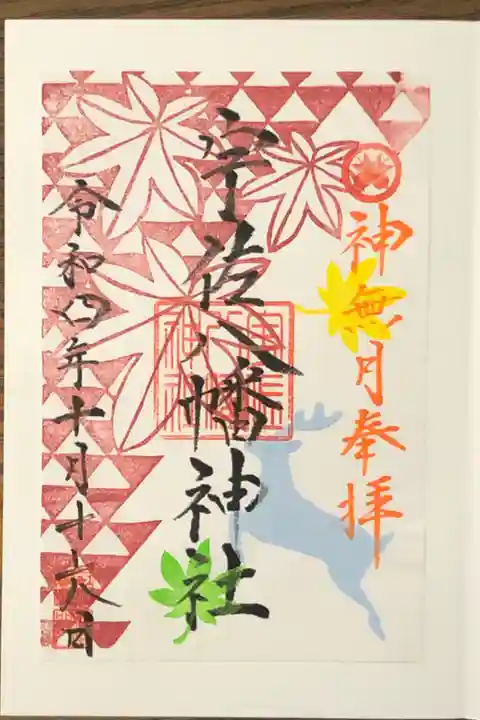 神無月奉拝
宇佐八幡神社
令和四年十月十六日